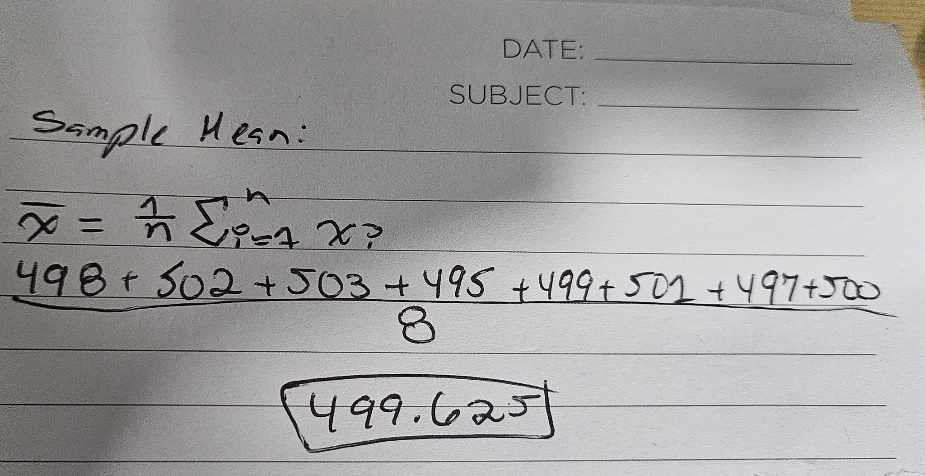 DATE:
SUBJECT:
Sample Mean:
x̄ = 1/n Σⁿᵢ₌₁ xᵢ
498 + 502 + 503 + 495 + 499 + 501 + 497 + 500
8
499.625